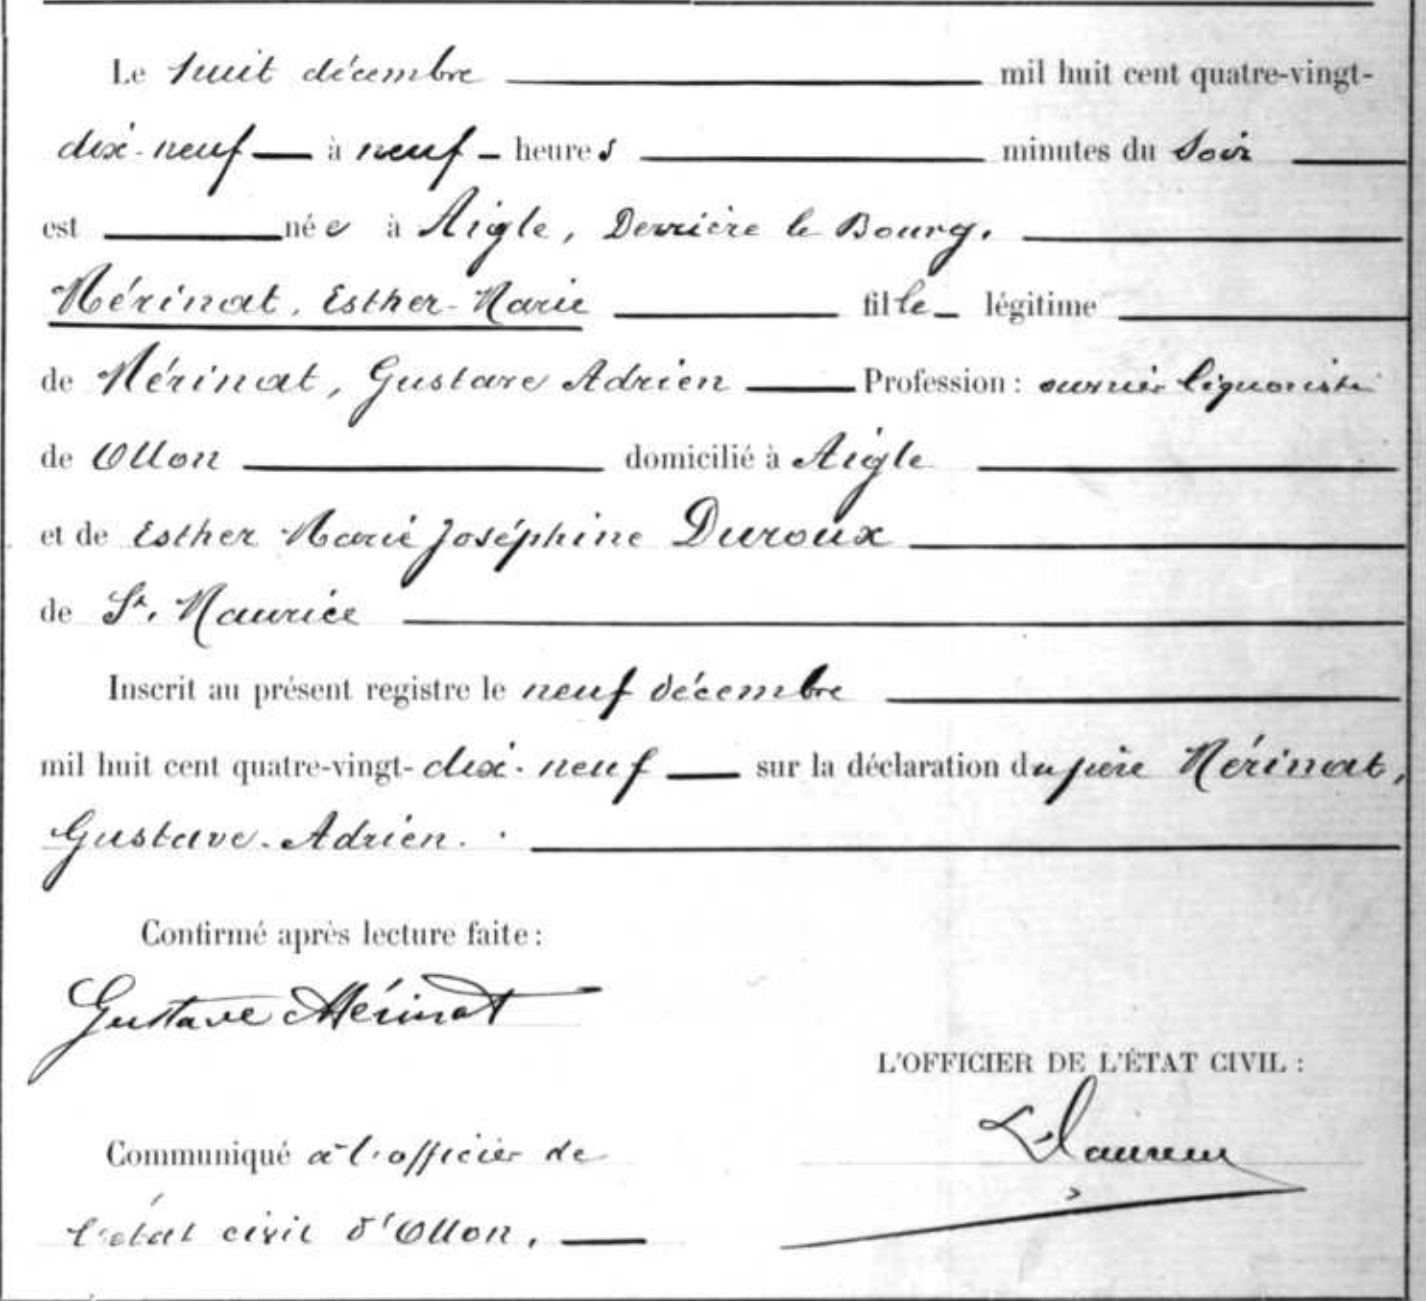 Le huit décembre mil huit cent quatre-vingt-
dix-neuf à neuf heures minutes du soir
est née à Aigle, Derrière le Bourg.
Mérinat, Esther-Marie fille légitime
de Mérinat, Gustave Adrien Profession : ouvrier liquoriste
de Ollon domicilié à Aigle
et de Esther Marie Joséphine Duroux
de St. Maurice
Inscrit au présent registre le neuf décembre
mil huit cent quatre-vingt-dix-neuf sur la déclaration du père Mérinat,
Gustave-Adrien.
Confirmé après lecture faite :
Gustave Mérinat
L'OFFICIER DE L'ÉTAT CIVIL :
Communiqué à l'officier de
l'état civil d'Ollon.